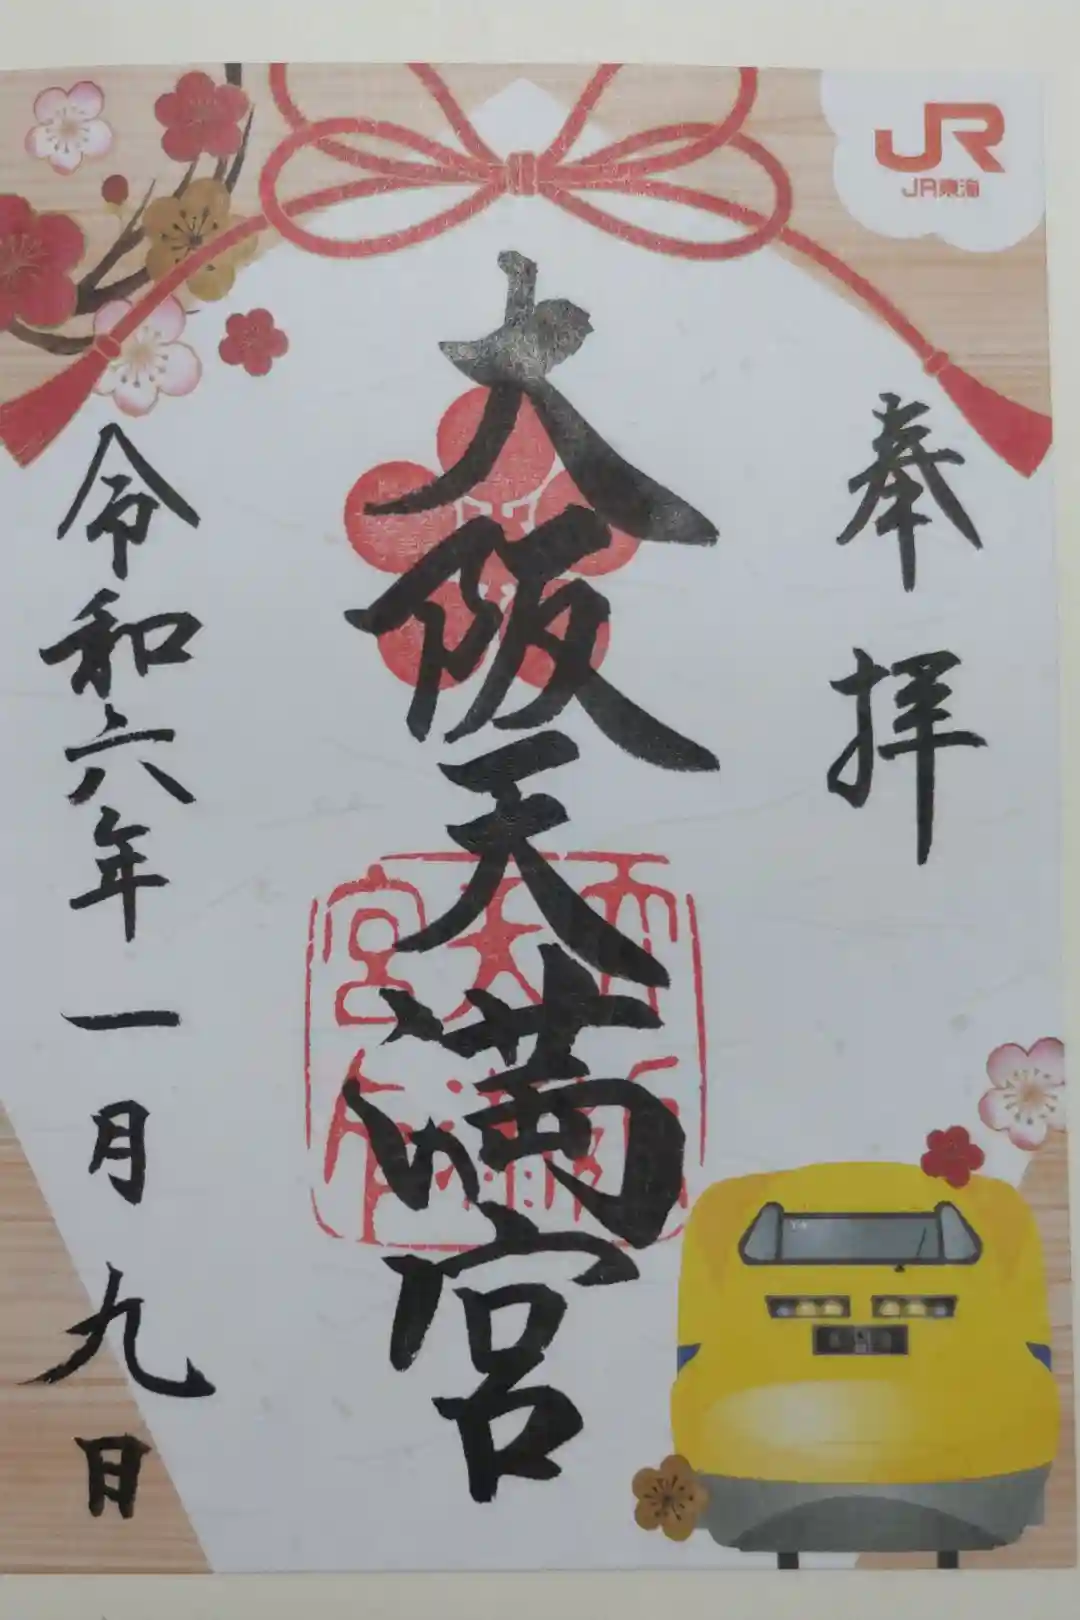 JR
JR東海
奉拝
大阪天満宮
令和六年一月九日